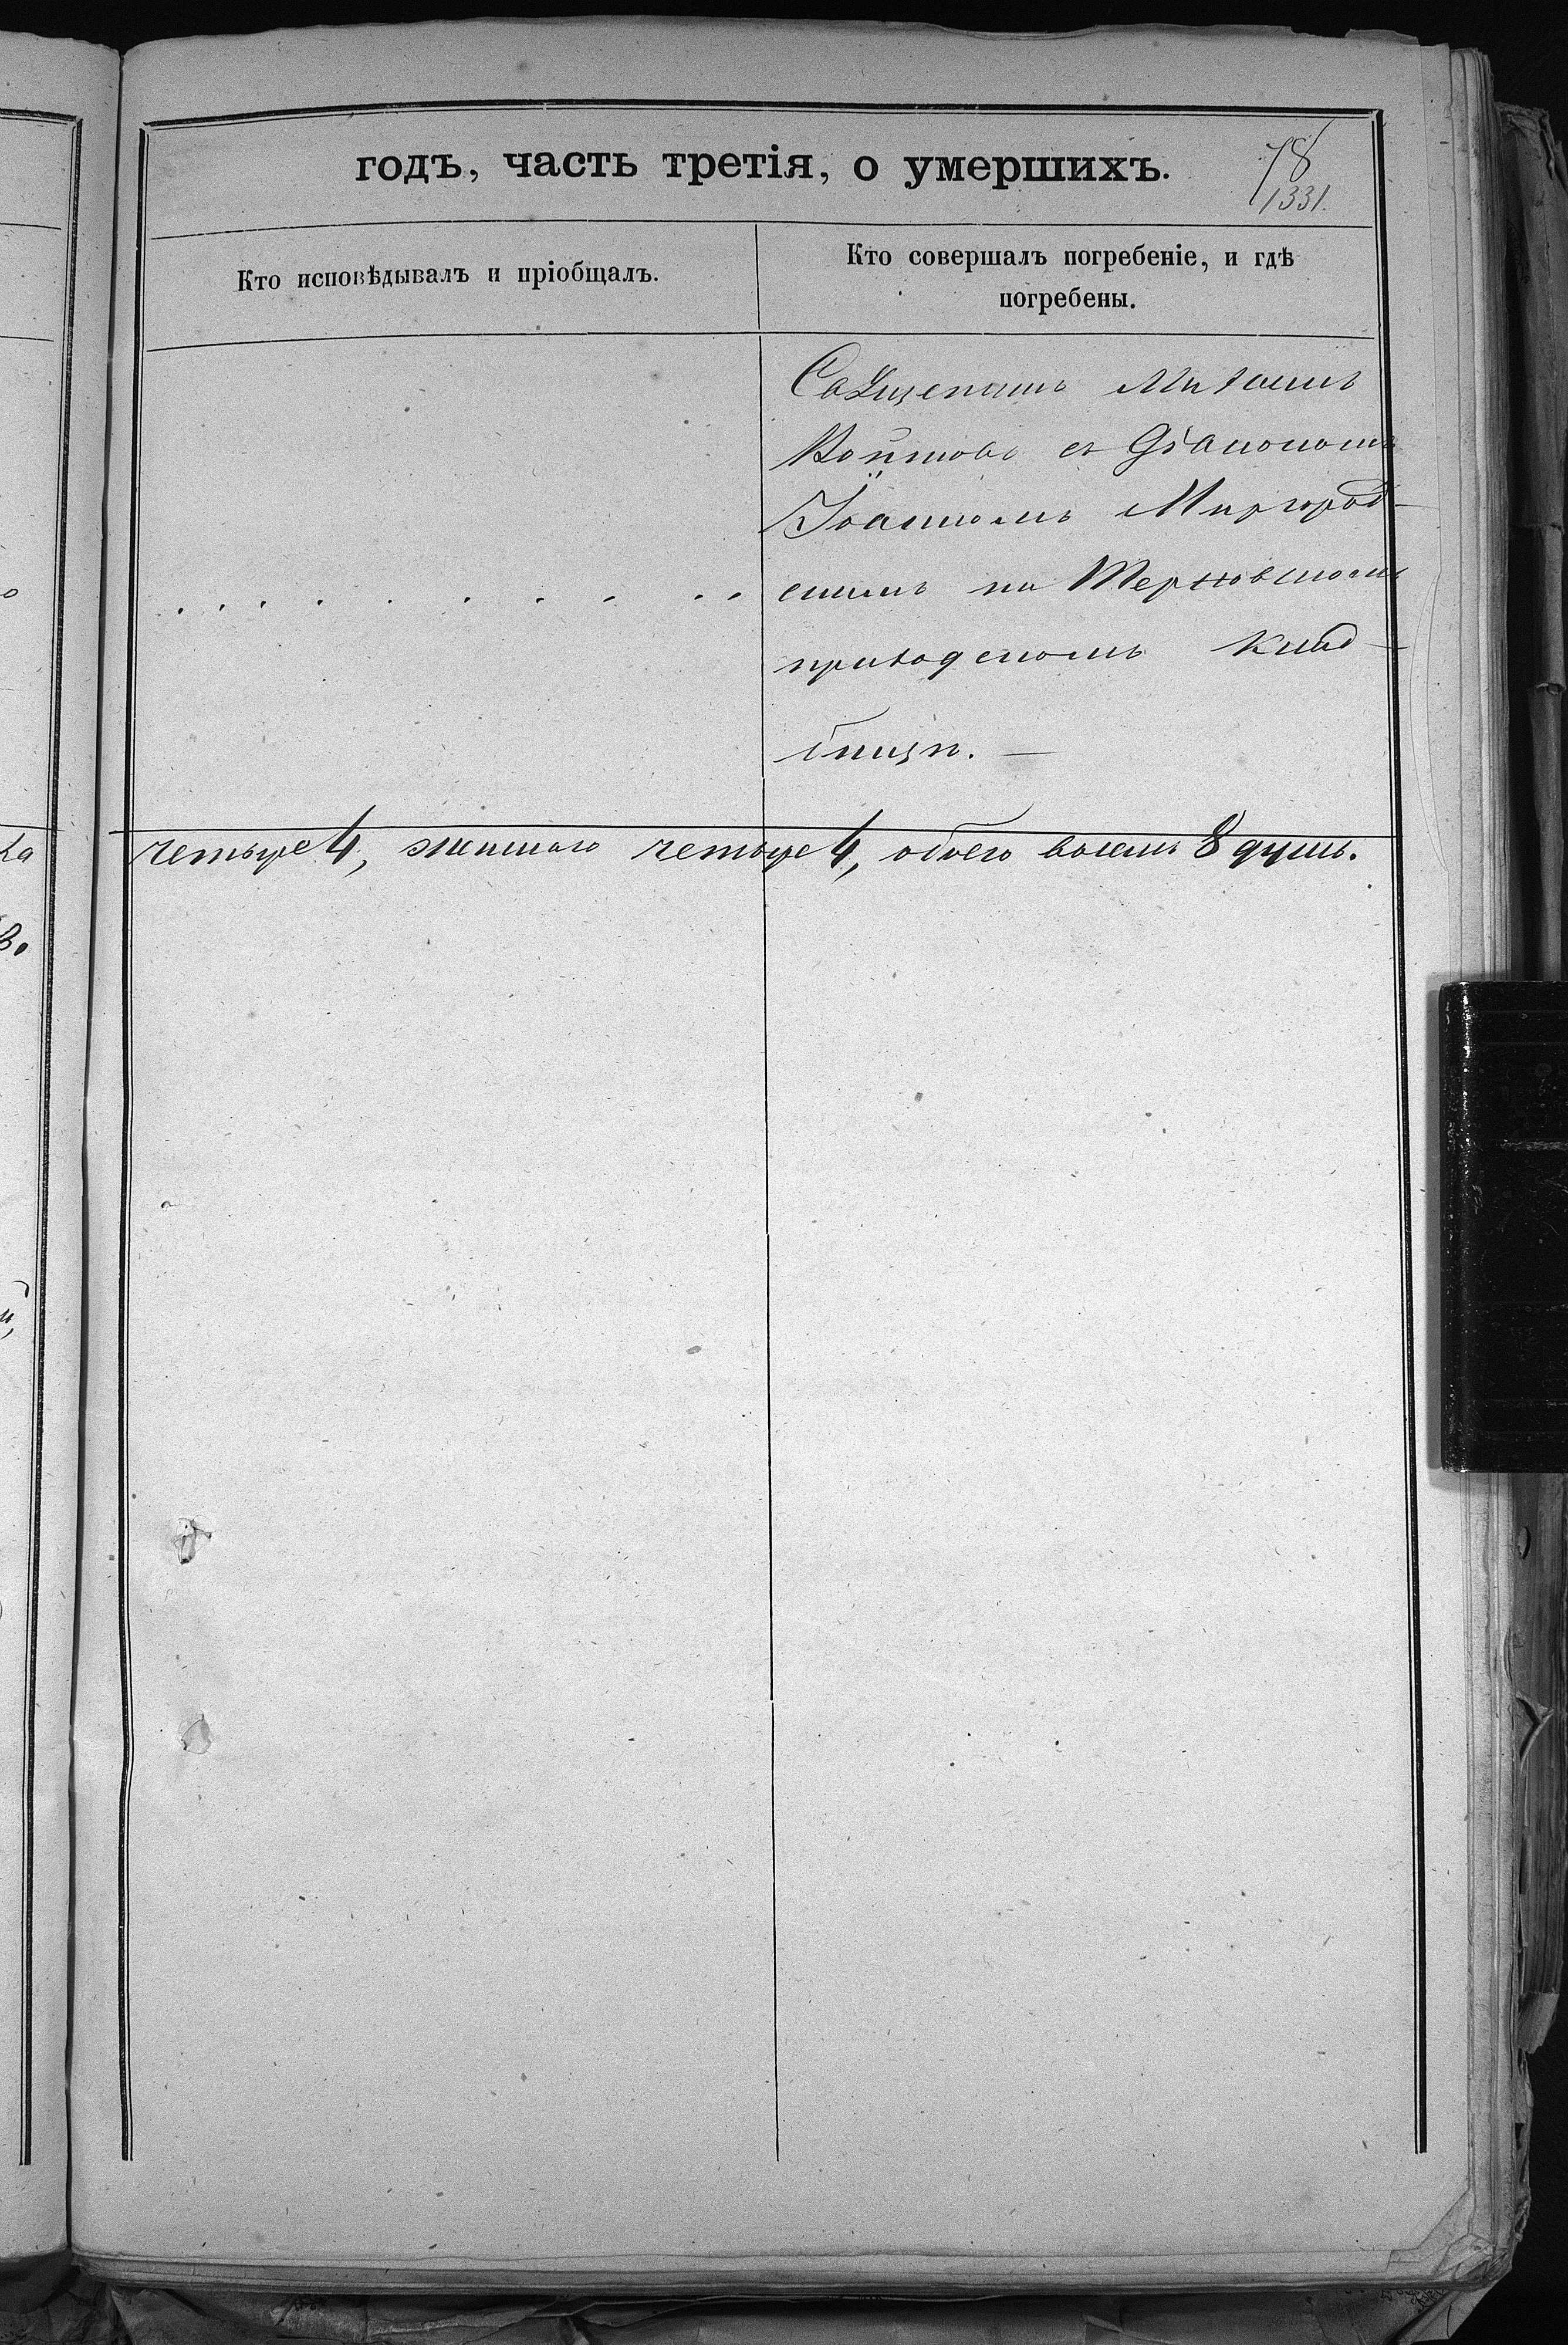 годъ, часть третія, о умершихъ.
78
1331.
Кто исповѣдывалъ и пріобщалъ.
Кто совершалъ погребеніе, и гдѣ
погребены.
Священникъ Михаилъ
Войтовъ съ Діакономъ
Іоанномъ Миргород-
скимъ на Терновскомъ
приходскомъ клад-
бищѣ. —
четыре 4, женскаго четыре 4, обоего восемь 8 душъ.